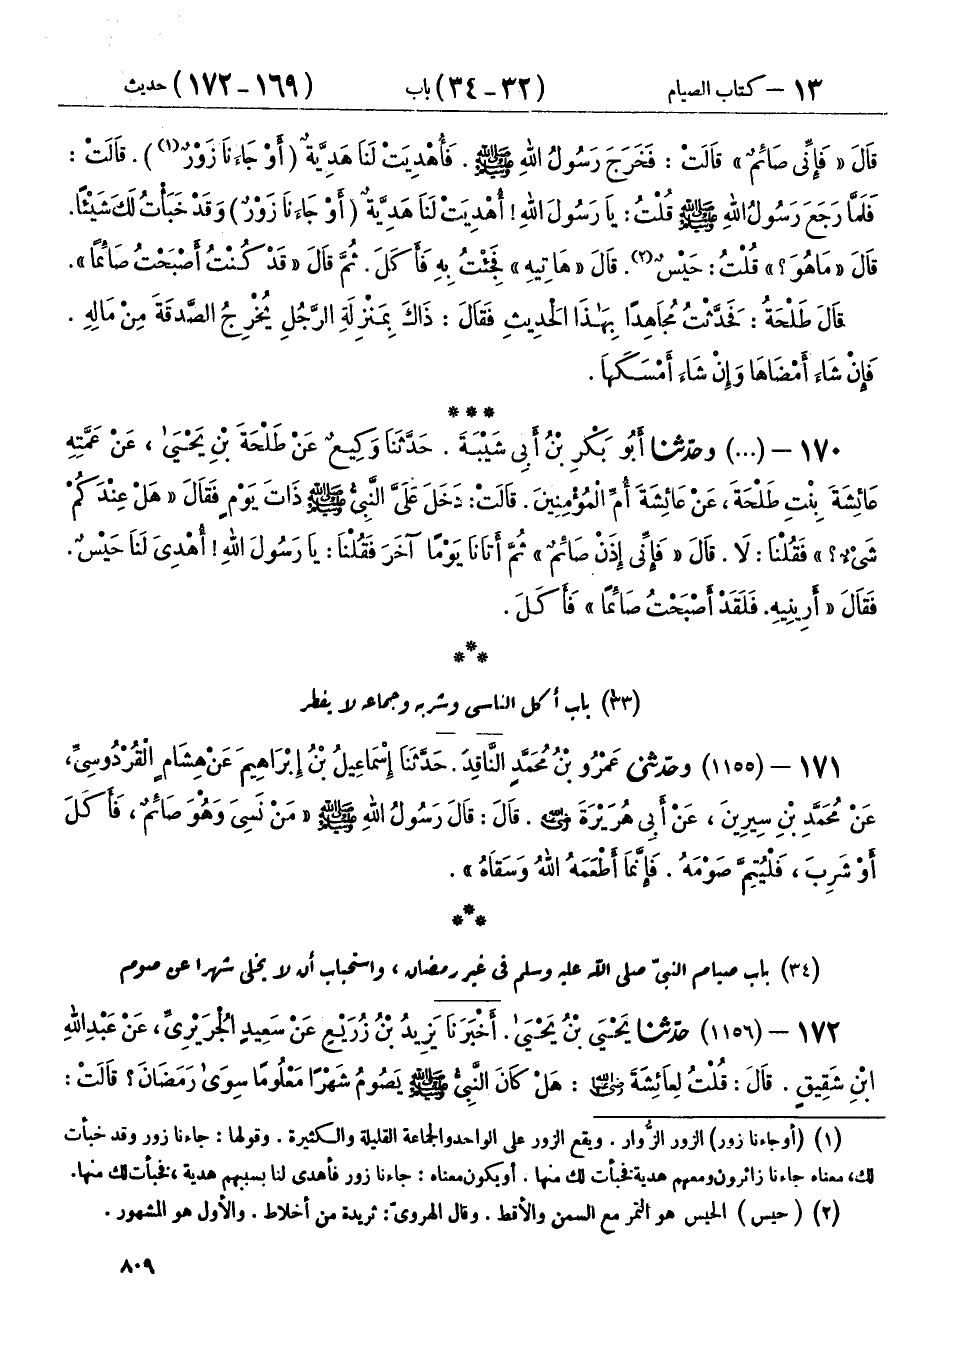 ١٣ – كتاب الصيام (٣٢ – ٣٤) باب (١٦٩ – ١٧٢) حديث
قَالَ « فَإِنِّى صَائِمٌ » قَالَتْ : فَخَرَجَ رَسُولُ اللهِ ﷺ . فَأُهْدِيَتْ لَنَا هَدِيَّةٌ ( أَوْ جَاءَنَا زَوْرٌ(١) ) . قَالَتْ :
فَلَمَّا رَجَعَ رَسُولُ اللهِ ﷺ قُلْتُ : يَا رَسُولَ اللهِ ! أُهْدِيَتْ لَنَا هَدِيَّةٌ ( أَوْ جَاءَنَا زَوْرٌ ) وَقَدْ خَبَأْتُ لَكَ شَيْئًا.
قَالَ « مَاهُوَ ؟ » قُلْتُ : حَيْسٌ(٢). قَالَ « هَاتِيهِ » فَجِئْتُ بِهِ فَأَكَلَ . ثُمَّ قَالَ « قَدْ كُنْتُ أَصْبَحْتُ صَائِمًا ».
قَالَ طَلْحَةُ : فَحَدَّثْتُ مُجَاهِدًا بِهَـٰذَا الْحَدِيثِ فَقَالَ : ذَاكَ بِمَنْزِلَةِ الرَّجُلِ يُخْرِجُ الصَّدَقَةَ مِنْ مَالِهِ .
فَإِنْ شَاءَ أَمْضَاهَا وَإِنْ شَاءَ أَمْسَكَهَا .
***
١٧٠ – (...) وحَدَّثَنَا أَبُو بَكْرِ بْنُ أَبِي شَيْبَةَ . حَدَّثَنَا وَكِيعٌ عَنْ طَلْحَةَ بْنِ يَحْيَىٰ ، عَنْ عَمَّتِهِ
عَائِشَةَ بِنْتِ طَلْحَةَ ، عَنْ عَائِشَةَ أُمِّ الْمُؤْمِنِينَ . قَالَتْ: دَخَلَ عَلَيَّ النَّبِيُّ ﷺ ذَاتَ يَوْمٍ فَقَالَ « هَلْ عِنْدَكُمْ
شَيْءٌ ؟ » فَقُلْنَا : لَا . قَالَ « فَإِنِّى إِذَنْ صَائِمٌ » ثُمَّ أَتَانَا يَوْمًا آخَرَ فَقُلْنَا : يَا رَسُولَ اللهِ ! أُهْدِىَ لَنَا حَيْسٌ.
فَقَالَ « أَرِينِيهِ. فَلَقَدْ أَصْبَحْتُ صَائِمًا » فَأَكَلَ .
***
(٣٣) باب أكل الناسى وشربه وجماعه لا يفطر
١٧١ – (١١٥٥) وحَدَّثَنِى عَمْرُو بْنُ مُحَمَّدٍ النَّاقِدُ . حَدَّثَنَا إِسْمَاعِيلُ بْنُ إِبْرَاهِيمَ عَنْ هِشَامٍ الْقُرْدُوسِيِّ،
عَنْ مُحَمَّدِ بْنِ سِيرِينَ ، عَنْ أَبِي هُرَيْرَةَ رضي الله عنه . قَالَ : قَالَ رَسُولُ اللهِ ﷺ « مَنْ نَسِيَ وَهُوَ صَائِمٌ ، فَأَكَلَ
أَوْ شَرِبَ ، فَلْيُتِمَّ صَوْمَهُ . فَإِنَّمَا أَطْعَمَهُ اللهُ وَسَقَاهُ » .
***
(٣٤) باب صيام النبىّ صلى الله عليه وسلم فى غير رمضان ، واستحباب أن لا يخلى شهرا عن صوم
١٧٢ – (١١٥٦) حَدَّثَنَا يَحْيَى بْنُ يَحْيَىٰ. أَخْبَرَنَا يَزِيدُ بْنُ زُرَيْعٍ عَنْ سَعِيدٍ الْجُرَيْرِيِّ ، عَنْ عَبْدِ اللهِ
ابْنِ شَقِيقٍ . قَالَ : قُلْتُ لِعَائِشَةَ رضي الله عنها : هَلْ كَانَ النَّبِيُّ ﷺ يَصُومُ شَهْرًا مَعْلُومًا سِوَىٰ رَمَضَانَ ؟ قَالَتْ :
(١) (أوجاءنا زور) الزور الزُّوار . ويقع الزور على الواحد والجماعة القليلة والكثيرة . وقولها : جاءنا زور وقد خبأت
لك، معناه جاءنا زائرون ومعهم هدية فخبأت لك منها . أو يكون معناه : جاءنا زور فأهدى لنا بسببهم هدية ، فخبأت لك منها.
(٢) ( حيس ) الحيس هو التمر مع السمن والأقط . وقال الهروىّ : ثريدة من أخلاط . والأول هو المشهور .
٨٠٩